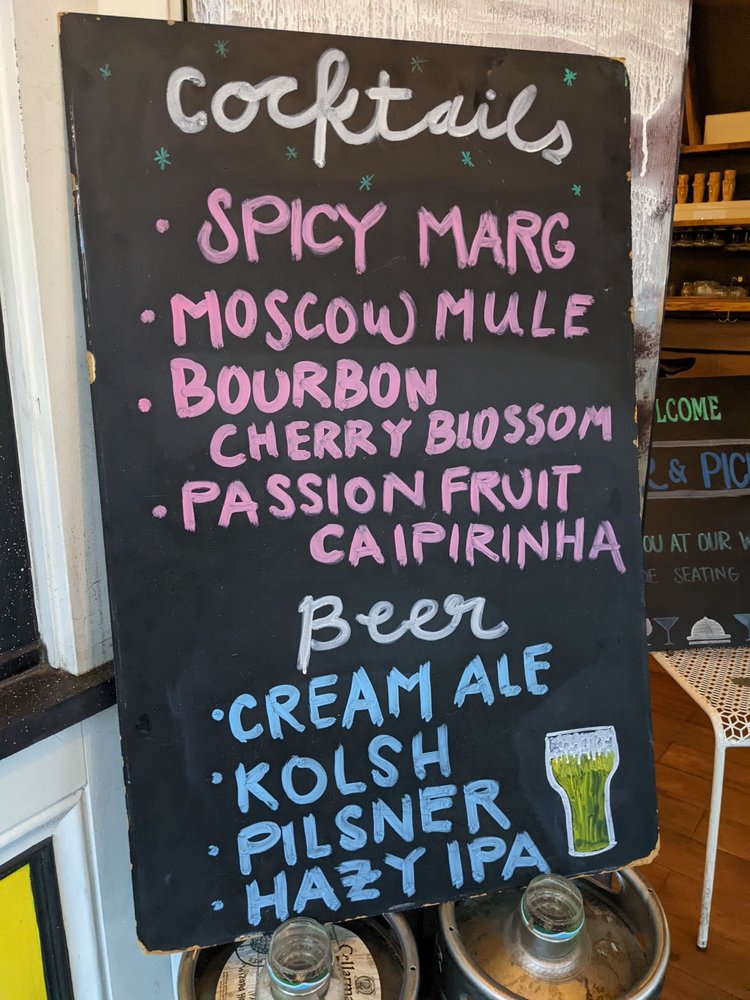 Cocktails
• SPICY MARG
• MOSCOW MULE
• BOURBON
CHERRY BLOSSOM
• PASSION FRUIT
CAIPIRINHA
Beer
• CREAM ALE
• KOLSH
• PILSNER
• HAZY IPA
& PIC
AT OUR
SEATING